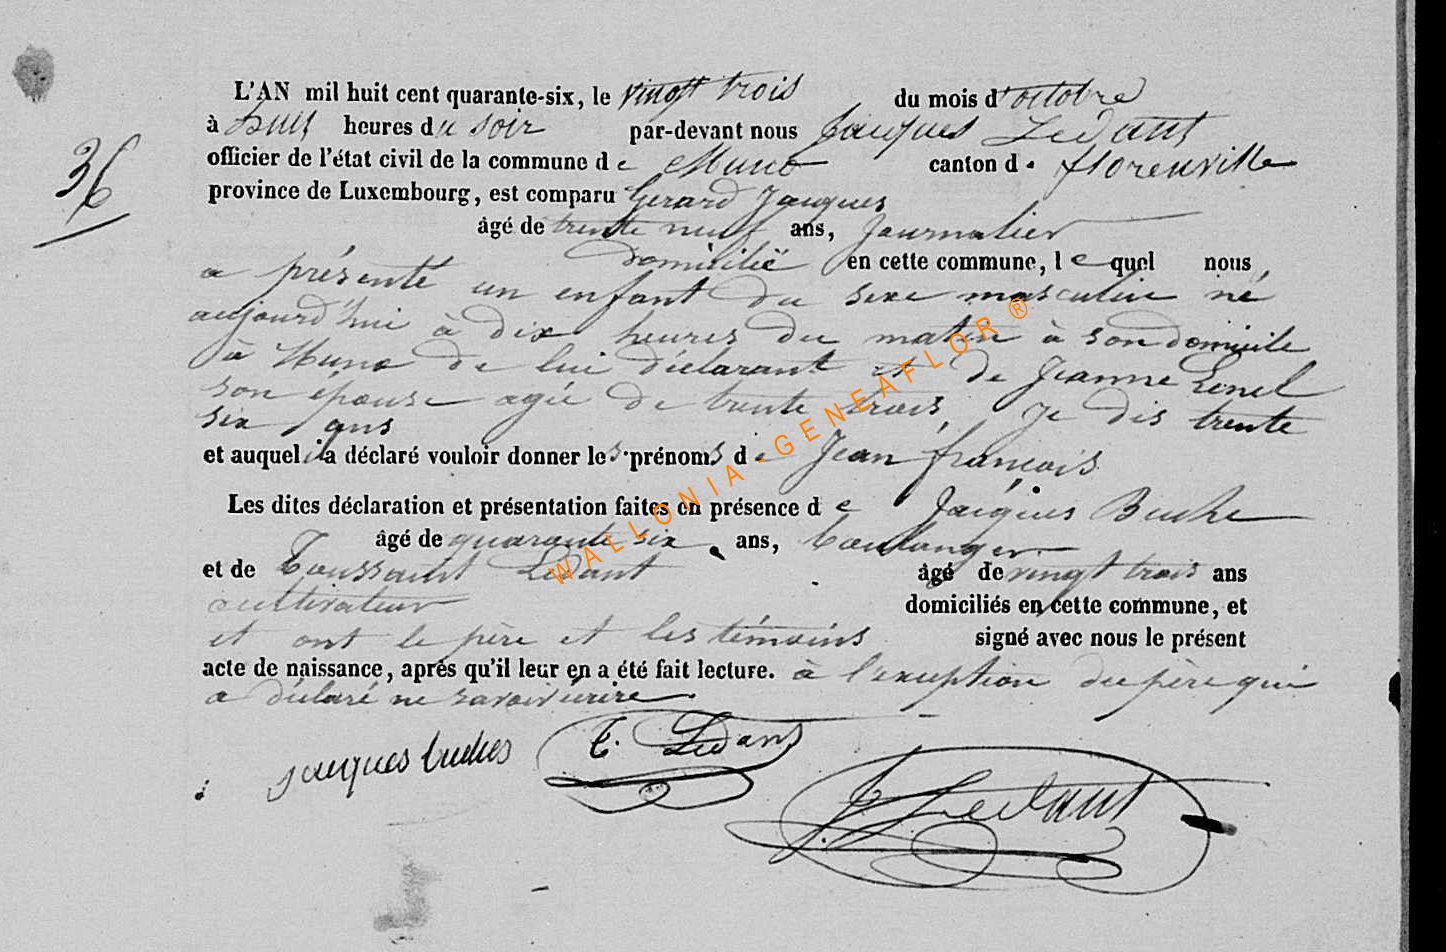 36
L'AN mil huit cent quarante-six, le vingt trois du mois d'octobre
à huit heures du soir par-devant nous Jacques Ledant
officier de l'état civil de la commune de Muno canton de florenville
province de Luxembourg, est comparu Gerard Jacques
âgé de trente neuf ans, Journalier
domicilié en cette commune, lequel nous
a présenté un enfant du sexe masculin né
aujourd'hui à dix heures du matin à son domicile
à Muno de lui déclarant et de Jeanne Lenel
son épouse agée de trente trois, Je dis trente
six ans
et auquel il a déclaré vouloir donner les prénoms de Jean françois
Les dites déclaration et présentation faites en présence de Jacques Buche
âgé de quarante six ans, boulanger
et de Toussaint Ledant âgé de vingt trois ans
cultivateur domiciliés en cette commune, et
et ont le père et les témoins signé avec nous le présent
acte de naissance, après qu'il leur en a été fait lecture. à l'exception du père qui
a déclaré ne savoir écrire
jacques buches T. Ledant
J. Ledant
WALLONIA - GENEAFLOR ®